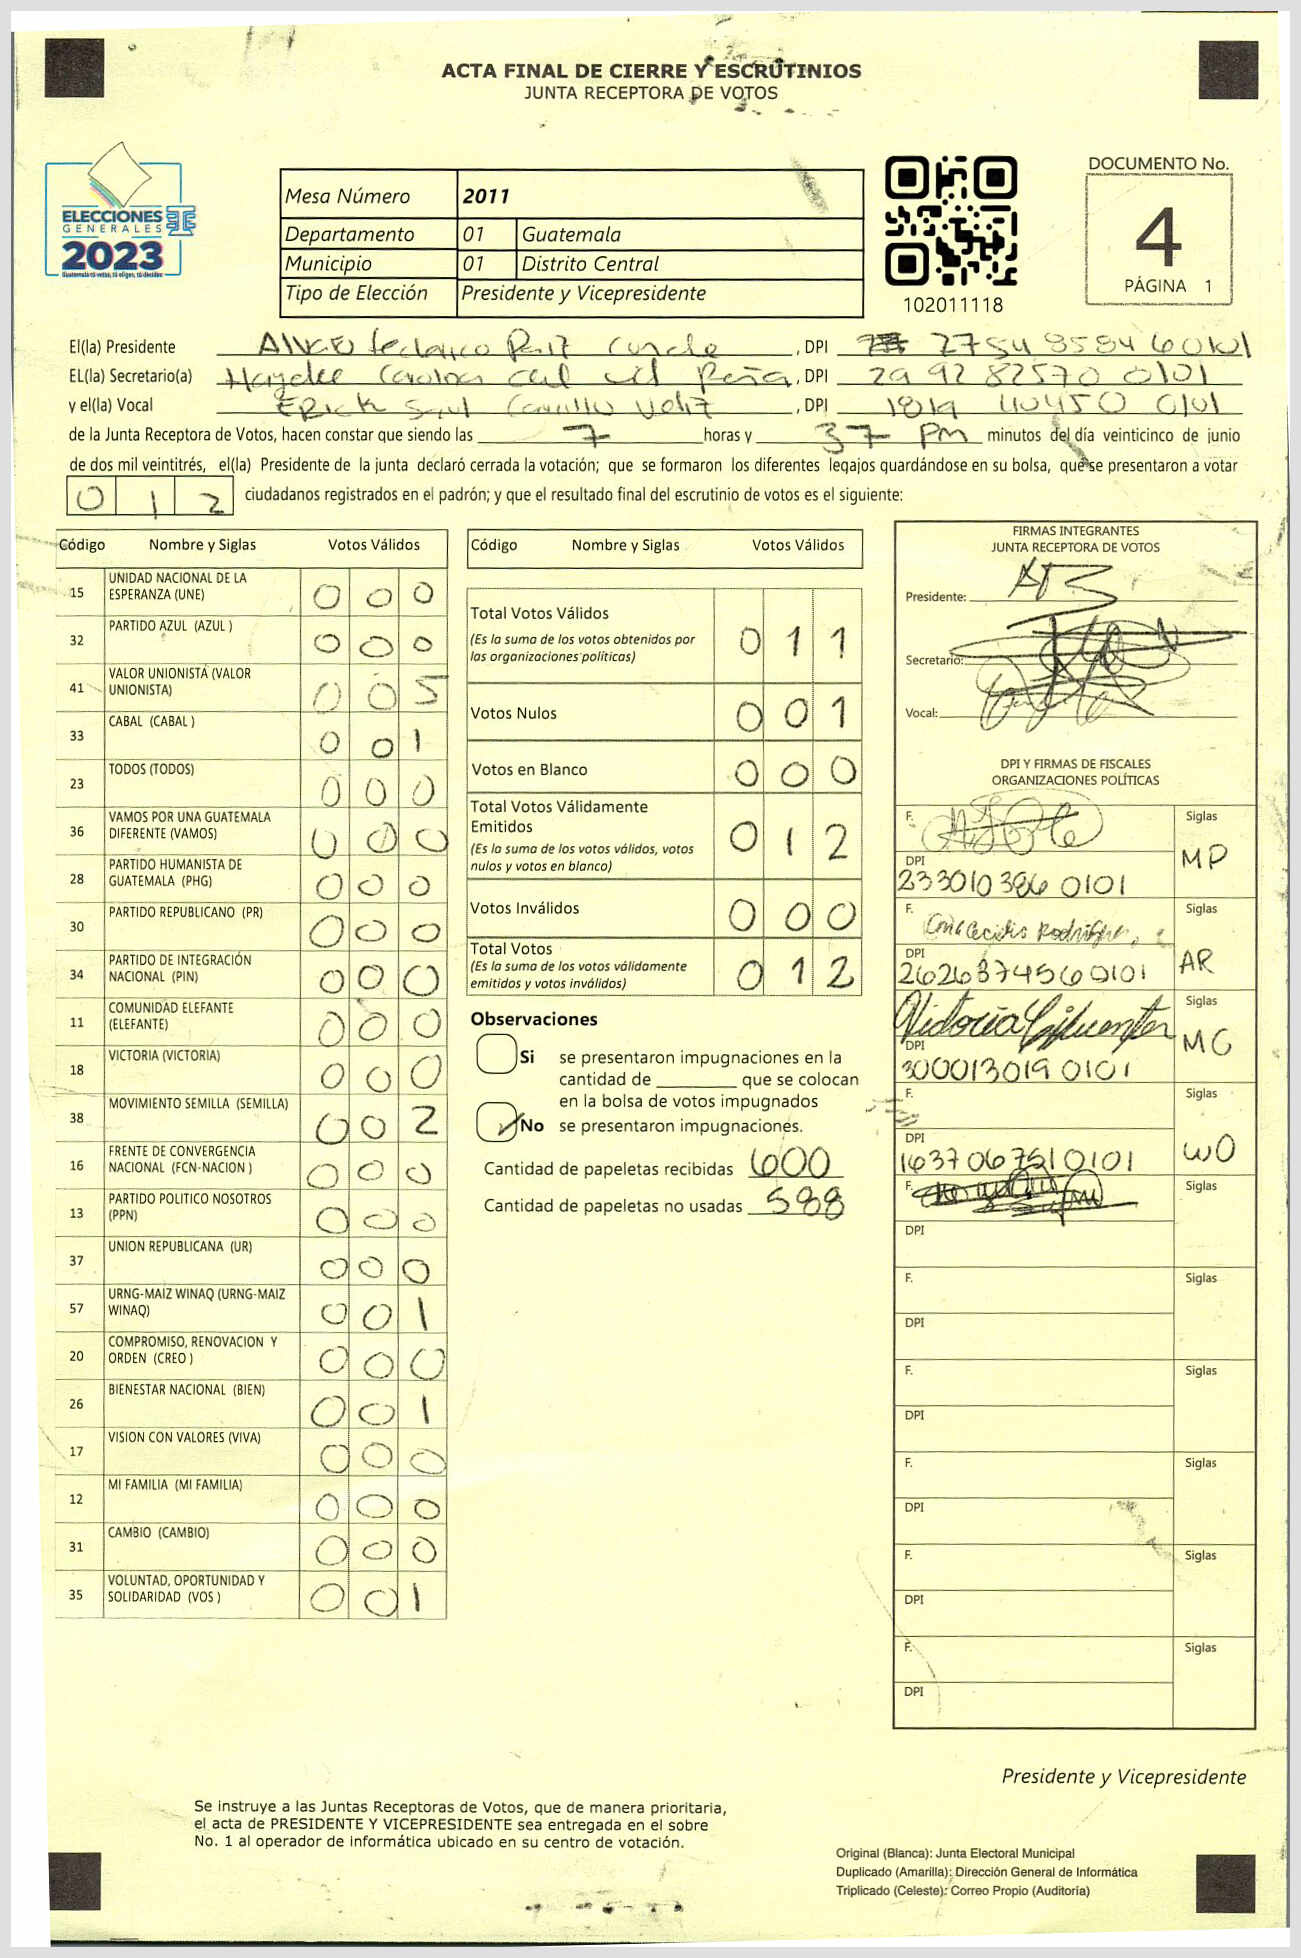 ACTA FINAL DE CIERRE Y ESCRUTINIOS
JUNTA RECEPTORA DE VOTOS
ELECCIONES
GENERALES
2023
Guatemala tú votas, tú eliges, tú decides
Mesa Número 2011
Departamento 01 Guatemala
Municipio 01 Distrito Central
Tipo de Elección Presidente y Vicepresidente
102011118
DOCUMENTO No.
4
PÁGINA 1
El(la) Presidente Federico Ruiz , DPI 2754 85846 0101
EL(la) Secretario(a) Haydee Carolina del Cid Peña, DPI 2992 82570 0101
y el(la) Vocal Erick Saul Carrillo Veliz , DPI 1819 40450 0101
de la Junta Receptora de Votos, hacen constar que siendo las 7 horas y 37 PM minutos del día veinticinco de junio
de dos mil veintitrés, el(la) Presidente de la junta declaró cerrada la votación; que se formaron los diferentes legajos guardándose en su bolsa, que se presentaron a votar
0 1 2 ciudadanos registrados en el padrón; y que el resultado final del escrutinio de votos es el siguiente:
Código Nombre y Siglas Votos Válidos
15 UNIDAD NACIONAL DE LA ESPERANZA (UNE) 0 0 0
32 PARTIDO AZUL (AZUL ) 0 0 0
41 VALOR UNIONISTA (VALOR UNIONISTA) 0 0 5
33 CABAL (CABAL ) 0 0 1
23 TODOS (TODOS) 0 0 0
36 VAMOS POR UNA GUATEMALA DIFERENTE (VAMOS) 0 0 0
28 PARTIDO HUMANISTA DE GUATEMALA (PHG) 0 0 0
30 PARTIDO REPUBLICANO (PR) 0 0 0
34 PARTIDO DE INTEGRACIÓN NACIONAL (PIN) 0 0 0
11 COMUNIDAD ELEFANTE (ELEFANTE) 0 0 0
18 VICTORIA (VICTORIA) 0 0 0
38 MOVIMIENTO SEMILLA (SEMILLA) 0 0 2
16 FRENTE DE CONVERGENCIA NACIONAL (FCN-NACION ) 0 0 0
13 PARTIDO POLITICO NOSOTROS (PPN) 0 0 0
37 UNION REPUBLICANA (UR) 0 0 0
57 URNG-MAIZ WINAQ (URNG-MAIZ WINAQ) 0 0 1
20 COMPROMISO, RENOVACION Y ORDEN (CREO ) 0 0 0
26 BIENESTAR NACIONAL (BIEN) 0 0 1
17 VISION CON VALORES (VIVA) 0 0 0
12 MI FAMILIA (MI FAMILIA) 0 0 0
31 CAMBIO (CAMBIO) 0 0 0
35 VOLUNTAD, OPORTUNIDAD Y SOLIDARIDAD (VOS ) 0 0 1
Código Nombre y Siglas Votos Válidos
Total Votos Válidos 0 1 1
(Es la suma de los votos obtenidos por
las organizaciones políticas)
Votos Nulos 0 0 1
Votos en Blanco 0 0 0
Total Votos Válidamente
Emitidos 0 1 2
(Es la suma de los votos válidos, votos
nulos y votos en blanco)
Votos Inválidos 0 0 0
Total Votos 0 1 2
(Es la suma de los votos válidamente
emitidos y votos inválidos)
Observaciones
Si se presentaron impugnaciones en la
cantidad de ________ que se colocan
en la bolsa de votos impugnados
No se presentaron impugnaciones.
Cantidad de papeletas recibidas 600
Cantidad de papeletas no usadas 588
FIRMAS INTEGRANTES
JUNTA RECEPTORA DE VOTOS
Presidente:
Secretario:
Vocal:
DPI Y FIRMAS DE FISCALES
ORGANIZACIONES POLÍTICAS
F. Siglas
DPI MP
233010386 0101
F. Rodríguez Siglas
DPI AR
262637456 0101
F. Victoria Cifuentes Siglas
DPI MC
300013019 0101
F. Siglas
DPI WO
1637067510101
F. Siglas
DPI
F. Siglas
DPI
F. Siglas
DPI
F. Siglas
DPI
F. Siglas
DPI
F. Siglas
DPI
Presidente y Vicepresidente
Se instruye a las Juntas Receptoras de Votos, que de manera prioritaria,
el acta de PRESIDENTE Y VICEPRESIDENTE sea entregada en el sobre
No. 1 al operador de informática ubicado en su centro de votación.
Original (Blanca): Junta Electoral Municipal
Duplicado (Amarilla): Dirección General de Informática
Triplicado (Celeste): Correo Propio (Auditoría)